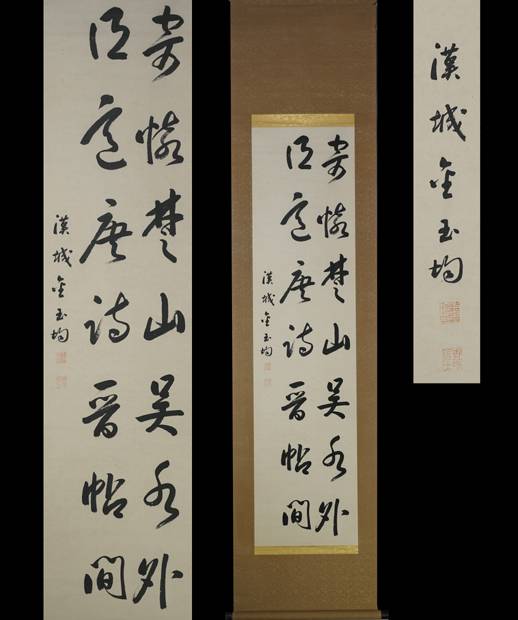 寄懷楚山吳水外
得意唐詩晉帖間
漢城金玉均
寄懷楚山吳水外
得意唐詩晉帖間
漢城金玉均
漢城金玉均